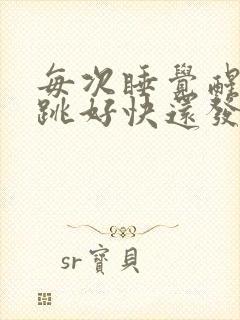 每次睡覺醒
跳好快還發
sr寶貝